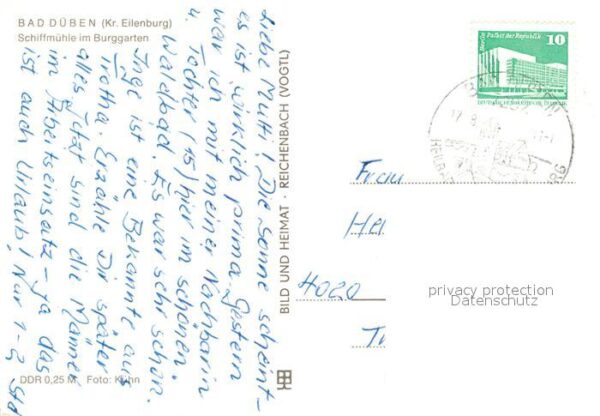 BAD DÜBEN (Kr. Eilenburg)
Schiffmühle im Burggarten
Liebe Mutti! Die Sonne scheint-
es ist wirklich prima. Gestern
war ich mit meiner Nachbarin
u. Tochter (15) hier im schönen
Waldbad. Es war sehr schön.
Inge ist eine Bekannte aus
Trotha. Erzähle Dir später
alles. Jetzt sind die Männer
im Arbeitseinsatz - ja das
ist auch Urlaub! Nur 1-2 Std
DDR 0,25 M Foto: Kühn
BILD UND HEIMAT · REICHENBACH (VOGTL)
Berlin Palast der Republik
10
DEUTSCHE DEMOKRATISCHE REPUBLIK
Frau
4020
privacy protection
Datenschutz